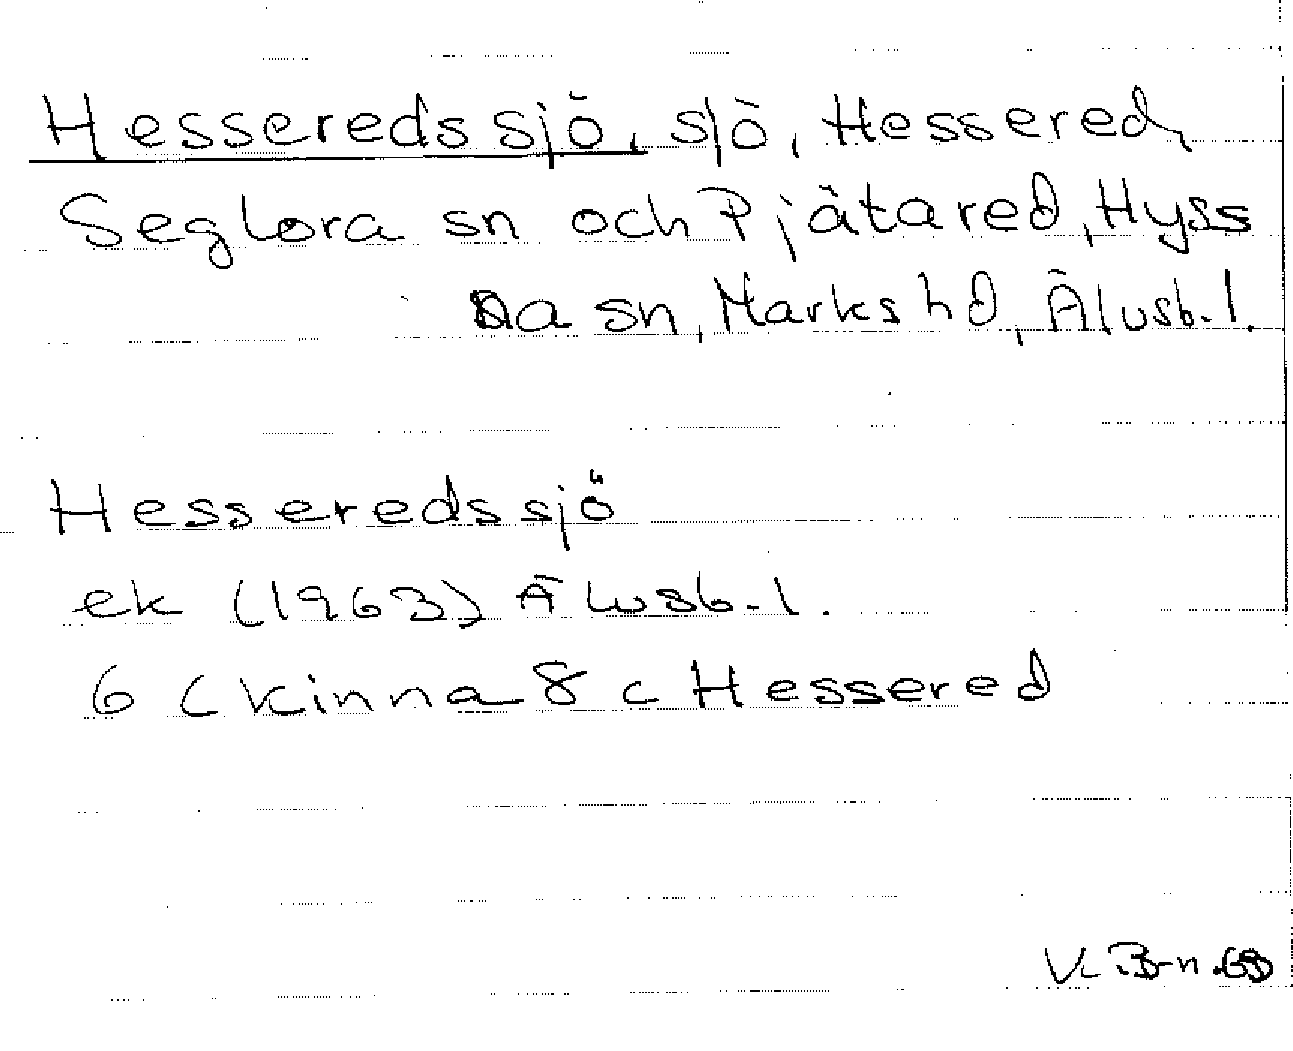 Hesseredssjö, sjö, Hessered,
Seglora sn och Pjätared, Hyss
na sn, Marks hd, Älvsb. l.
Hesseredssjö
ek (1963) Älvsb. l.
6 (Kinna 8 c Hessered
V. B-n.